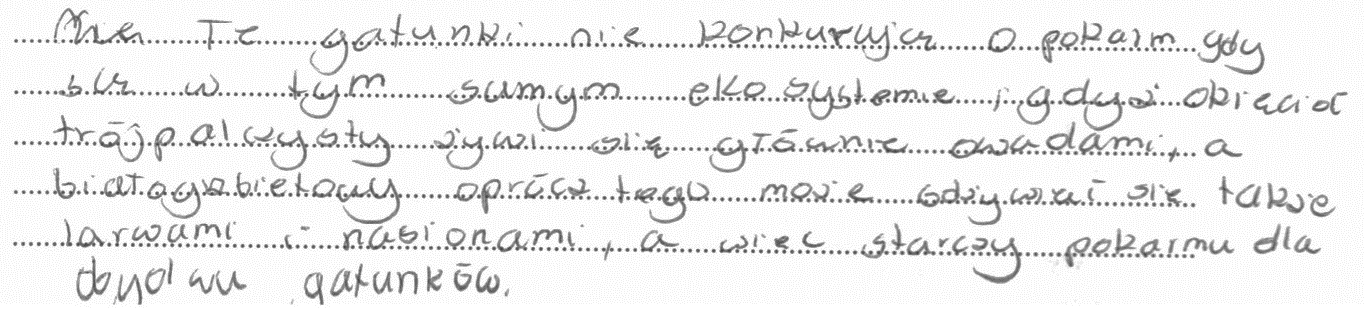 Nie Te gatunki nie konkurują o pokarm gdy
są w tym samym ekosystemie, gdyż dzięcioł
trójpalczysty żywi się głównie owadami, a
białogrzbietowy oprócz tego może odżywiać się także
larwami i nasionami, a więc starczy pokarmu dla
obydwu gatunków.